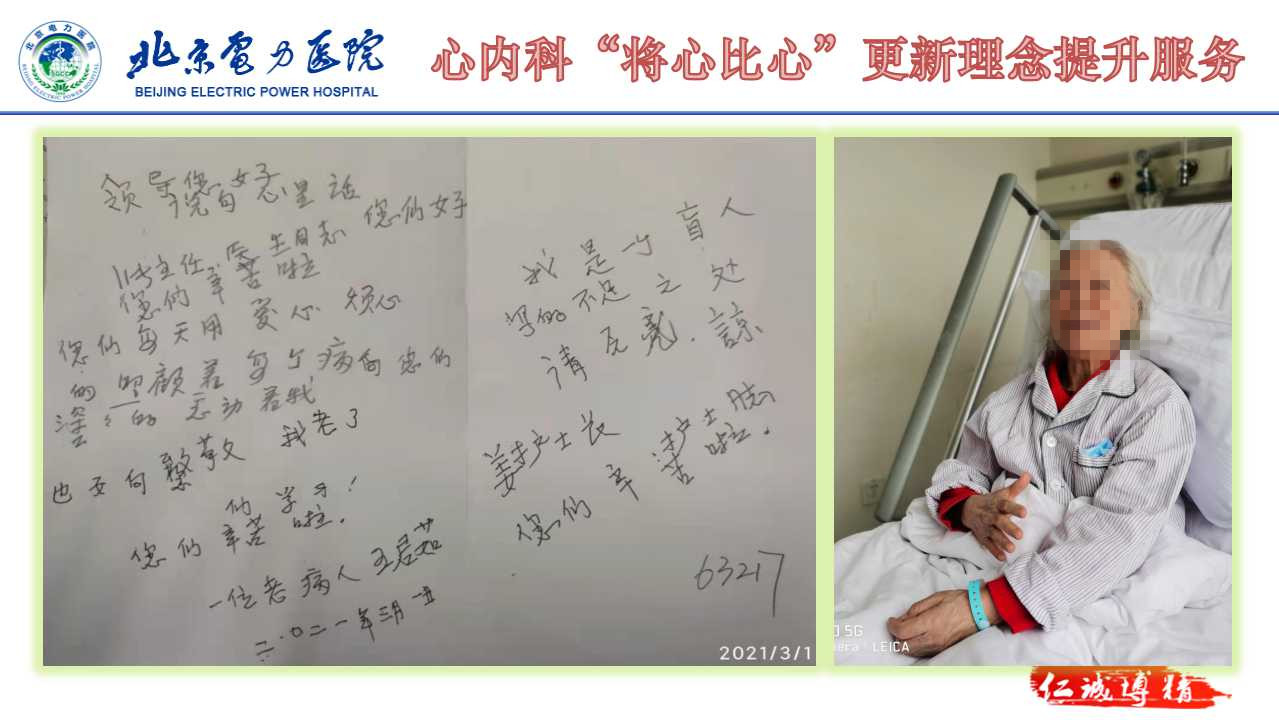 北京电力医院
BEIJING ELECTRIC POWER HOSPITAL
心内科“将心比心”更新理念提升服务
领导您好
说句心里话
主任医生同志您们好
您们辛苦啦
您们每天用爱心 烦心
的照顾着每个病
您们
深深的 动着我
我老了
也要向
们学习!
您们辛苦啦.
一位老病人王君茹
二.0二一年三月一五
我是一个盲人
写的不足之处
请瓦亮.諒
姜护士长
护士
您们辛苦啦.
63217
2021/3/1
5G
LEICA
仁诚博精